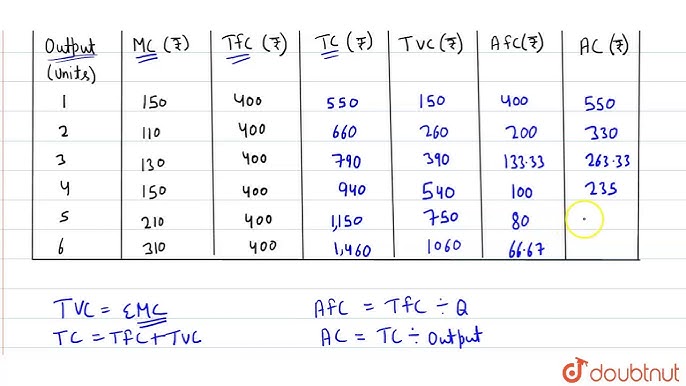 Output MC (₹) TFC (₹) TC (₹) TVC (₹) AFC (₹) AC (₹)
(Units)
1 150 400 550 150 400 550
2 110 400 660 260 200 330
3 130 400 790 390 133.33 263.33
4 150 400 940 540 100 235
5 210 400 1,150 750 80
6 310 400 1,460 1060 66.67
TVC = ΣMC AFC = TFC ÷ Q
TC = TFC + TVC AC = TC ÷ output
doubtnut